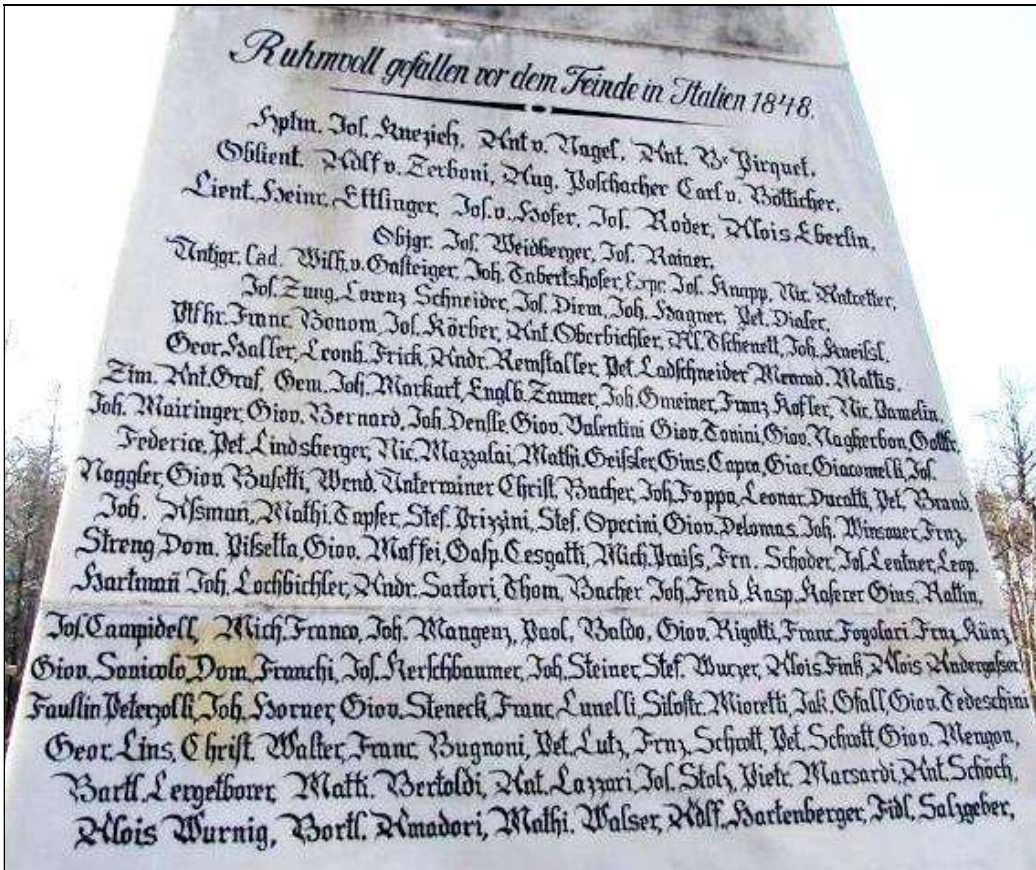 Ruhmvoll gefallen vor dem Feinde in Italien 1848.
Hptm. Jos. Knezich, Ant v. Nagel, Ant. Br Pirquet,
Oblient. Adlf v. Zerboni, Aug. Poschacher Carl v. Bötticher,
Lient. Heinr. Ettlinger, Jos. v. Hofer, Jos. Roder, Alois Eberlin,
Objgr. Jos. Weidberger, Jos. Rainer,
Untjgr. Cad. Wilh. v. Gasteiger. Joh. Tabertshofer, Expr. Jos. Knapp, Nic. Antretter,
Jos. Zung, Lorenz Schneider, Jos. Diem, Joh. Hagner, Pet. Dialer,
Ptfhr. Franc. Bonom, Jos. Körber, Ant. Oberbichler, Al. Tschenett, Joh. Kneißl.
Geor. Haller, Leonh. Frick, Andr. Remstaller, Pet. Ladschneider Menrad. Mattis.
Zim. Ant. Graf, Gem. Joh. Markart, Englb. Zauner, Joh. Gmeiner, Franz Kofler, Nic. Pamelin,
Joh. Mairinger, Giov. Bernard, Joh. Denfle, Giov. Valentini Giov. Tonini, Giov. Nagherbon, Gottfr.
Federice, Pet. Lindsberger, Nic. Mazzalai, Mathi. Geißler, Gius. Capra, Giac. Giacomelli, Jos.
Noggler, Giov. Busetti, Wend. Unterrainer Christ. Bucher, Joh. Foppa, Leonar. Ducatti, Pet. Brand,
Joh. Assmañ, Mathi. Tapfer, Stef. Prizzini, Stef. Specini, Giov. Delomas, Joh. Winsauer, Frnz.
Streng, Dom. Pissetta, Giov. Maffei, Gasp. Cesgatti, Mich. Praiss, Frn. Schoder, Jos. Lentner, Leop.
Hartmañ Joh. Lochbichler, Andr. Sartori, Thom. Bacher Joh. Fend, Kasp. Kaserer Gius. Rattin,
Jos. Campidell, Mich. Franco, Joh. Mangenz, Paol. Baldo, Giov. Rigotti, Franc. Fogolari, Frnz. Künz,
Giov. Sonicolo, Dom. Franchi, Jos. Kerschbaumer, Joh. Steiner, Stef. Wurzer, Alois Fink, Alois Andergasser,
Faustin Peterzolli, Joh. Horner, Giov. Steneck, Franc. Lunelli, Silostr. Mioretti, Jak. Gfall, Giov. Tedeschini
Geor. Lins, Christ. Walter, Franc. Bugnoni, Pet. Lutz, Frnz. Schrott, Pet. Schrott, Giov. Mengon,
Bartl. Lergetborer, Matti. Bertoldi, Ant. Lazzari, Jos. Stolz, Pietr. Marsardi, Ant. Schöch,
Alois Wurnig, Bortl. Amadori, Mathi. Walser, Adlf. Hartenberger, Fidl. Salzgeber,